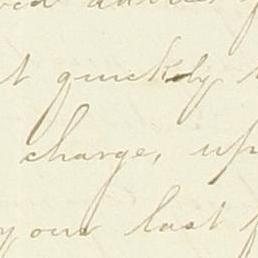 quickly
charge, up
your last